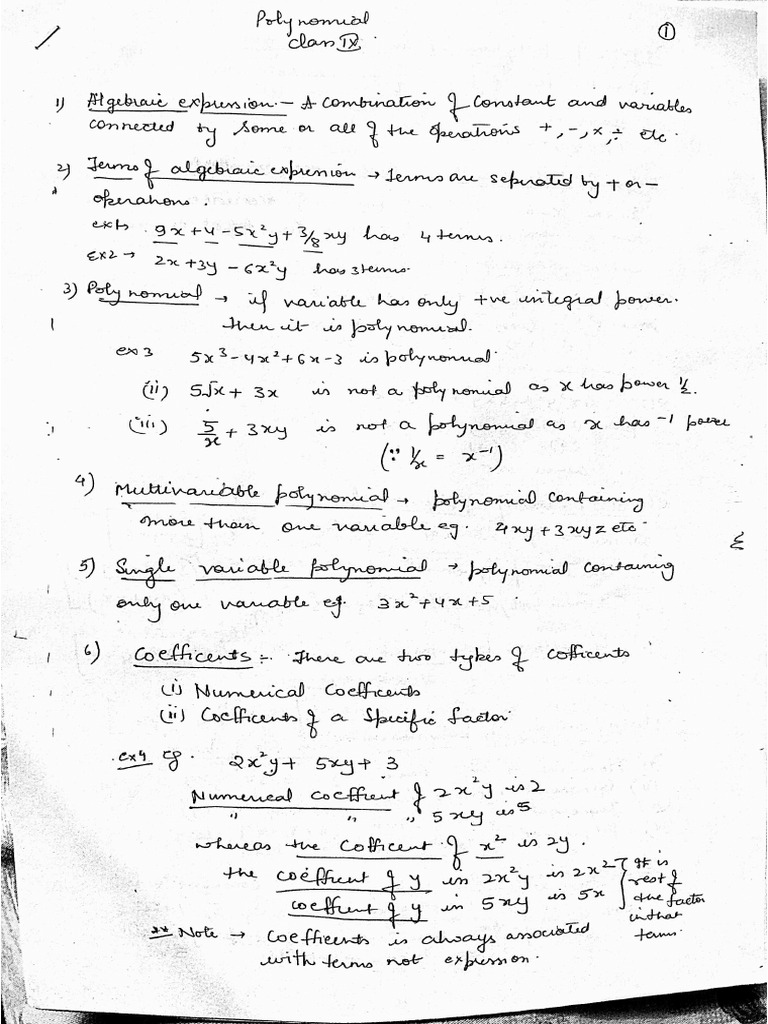 Polynomial
class IX
①
1) Algebraic expression:- A combination of constant and variables
connected by some or all of the operations +, -, ×, ÷ etc.
2) Terms of algebraic expression → Terms are seperated by + or -
operations.
ex1→ 9x + 4 - 5x²y + 3/8 xy has 4 terms.
Ex2 → 2x + 3y - 6x²y has 3 terms.
3) Polynomial → if variable has only +ve integral power.
then it is polynomial.
ex3 5x³ - 4x² + 6x - 3 is polynomial.
(ii) 5√x + 3x is not a polynomial as x has power ½.
(iii) 5/x + 3xy is not a polynomial as x has -1 power
(∵ 1/x = x⁻¹)
4) Multivariable polynomial → polynomial containing
more than one variable eg. 4xy + 3xyz etc.
5) Single variable polynomial → polynomial containing
only one variable eg. 3x² + 4x + 5.
6) Coefficents :- There are two types of cofficents
(i) Numerical Coefficents
(ii) Coefficents of a Specific factor
ex4 eg. 2x²y + 5xy + 3
Numerical coefficent of 2x²y is 2
" " " 5xy is 5
whereas the cofficent of x² is 2y.
the coefficent of y in 2x²y is 2x²
coefficent of y in 5xy is 5x
It is
rest of
the factor
in that
term.
** Note → Coefficents is always associated
with terms not expression.